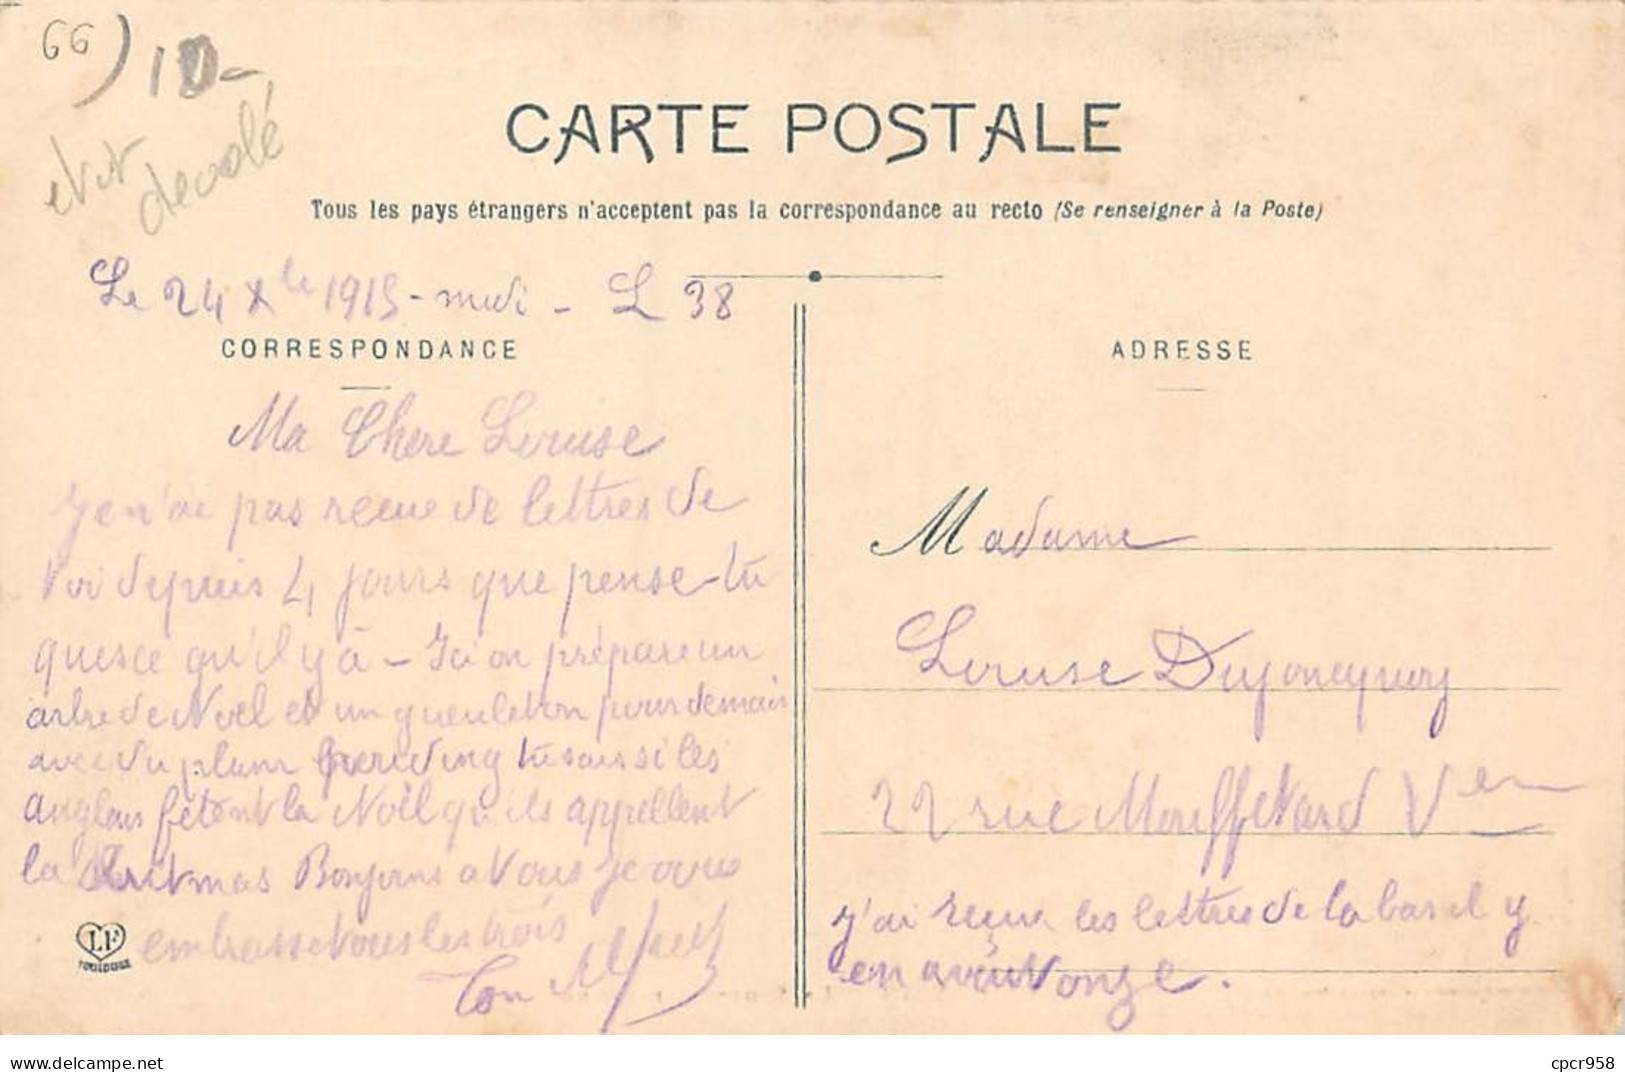 66) 10-
décolé
CARTE POSTALE
Tous les pays étrangers n'acceptent pas la correspondance au recto (Se renseigner à la Poste)
Le 24 Xbre 1915 - midi - L 38
CORRESPONDANCE
ADRESSE
Ma Chere Louise
Je n'ai pas recue de lettres de
toi depuis 4 jours que pense-tu
quesce qu'il y à - Ici on prépare un
arbre de Noël et un gueuleton pour demain
avec du plum puding tu sais si les
anglais fêtent la Noël qu'ils appellent
la Kritmas Bonjours a Vous je
embrasse Vous les trois
Ton
LF
TOULOUSE
Madame
Louise
22 rue Mouffetard Vème
j'ai reçue les lettres de la bas il y
en avait onze.
cpcr958